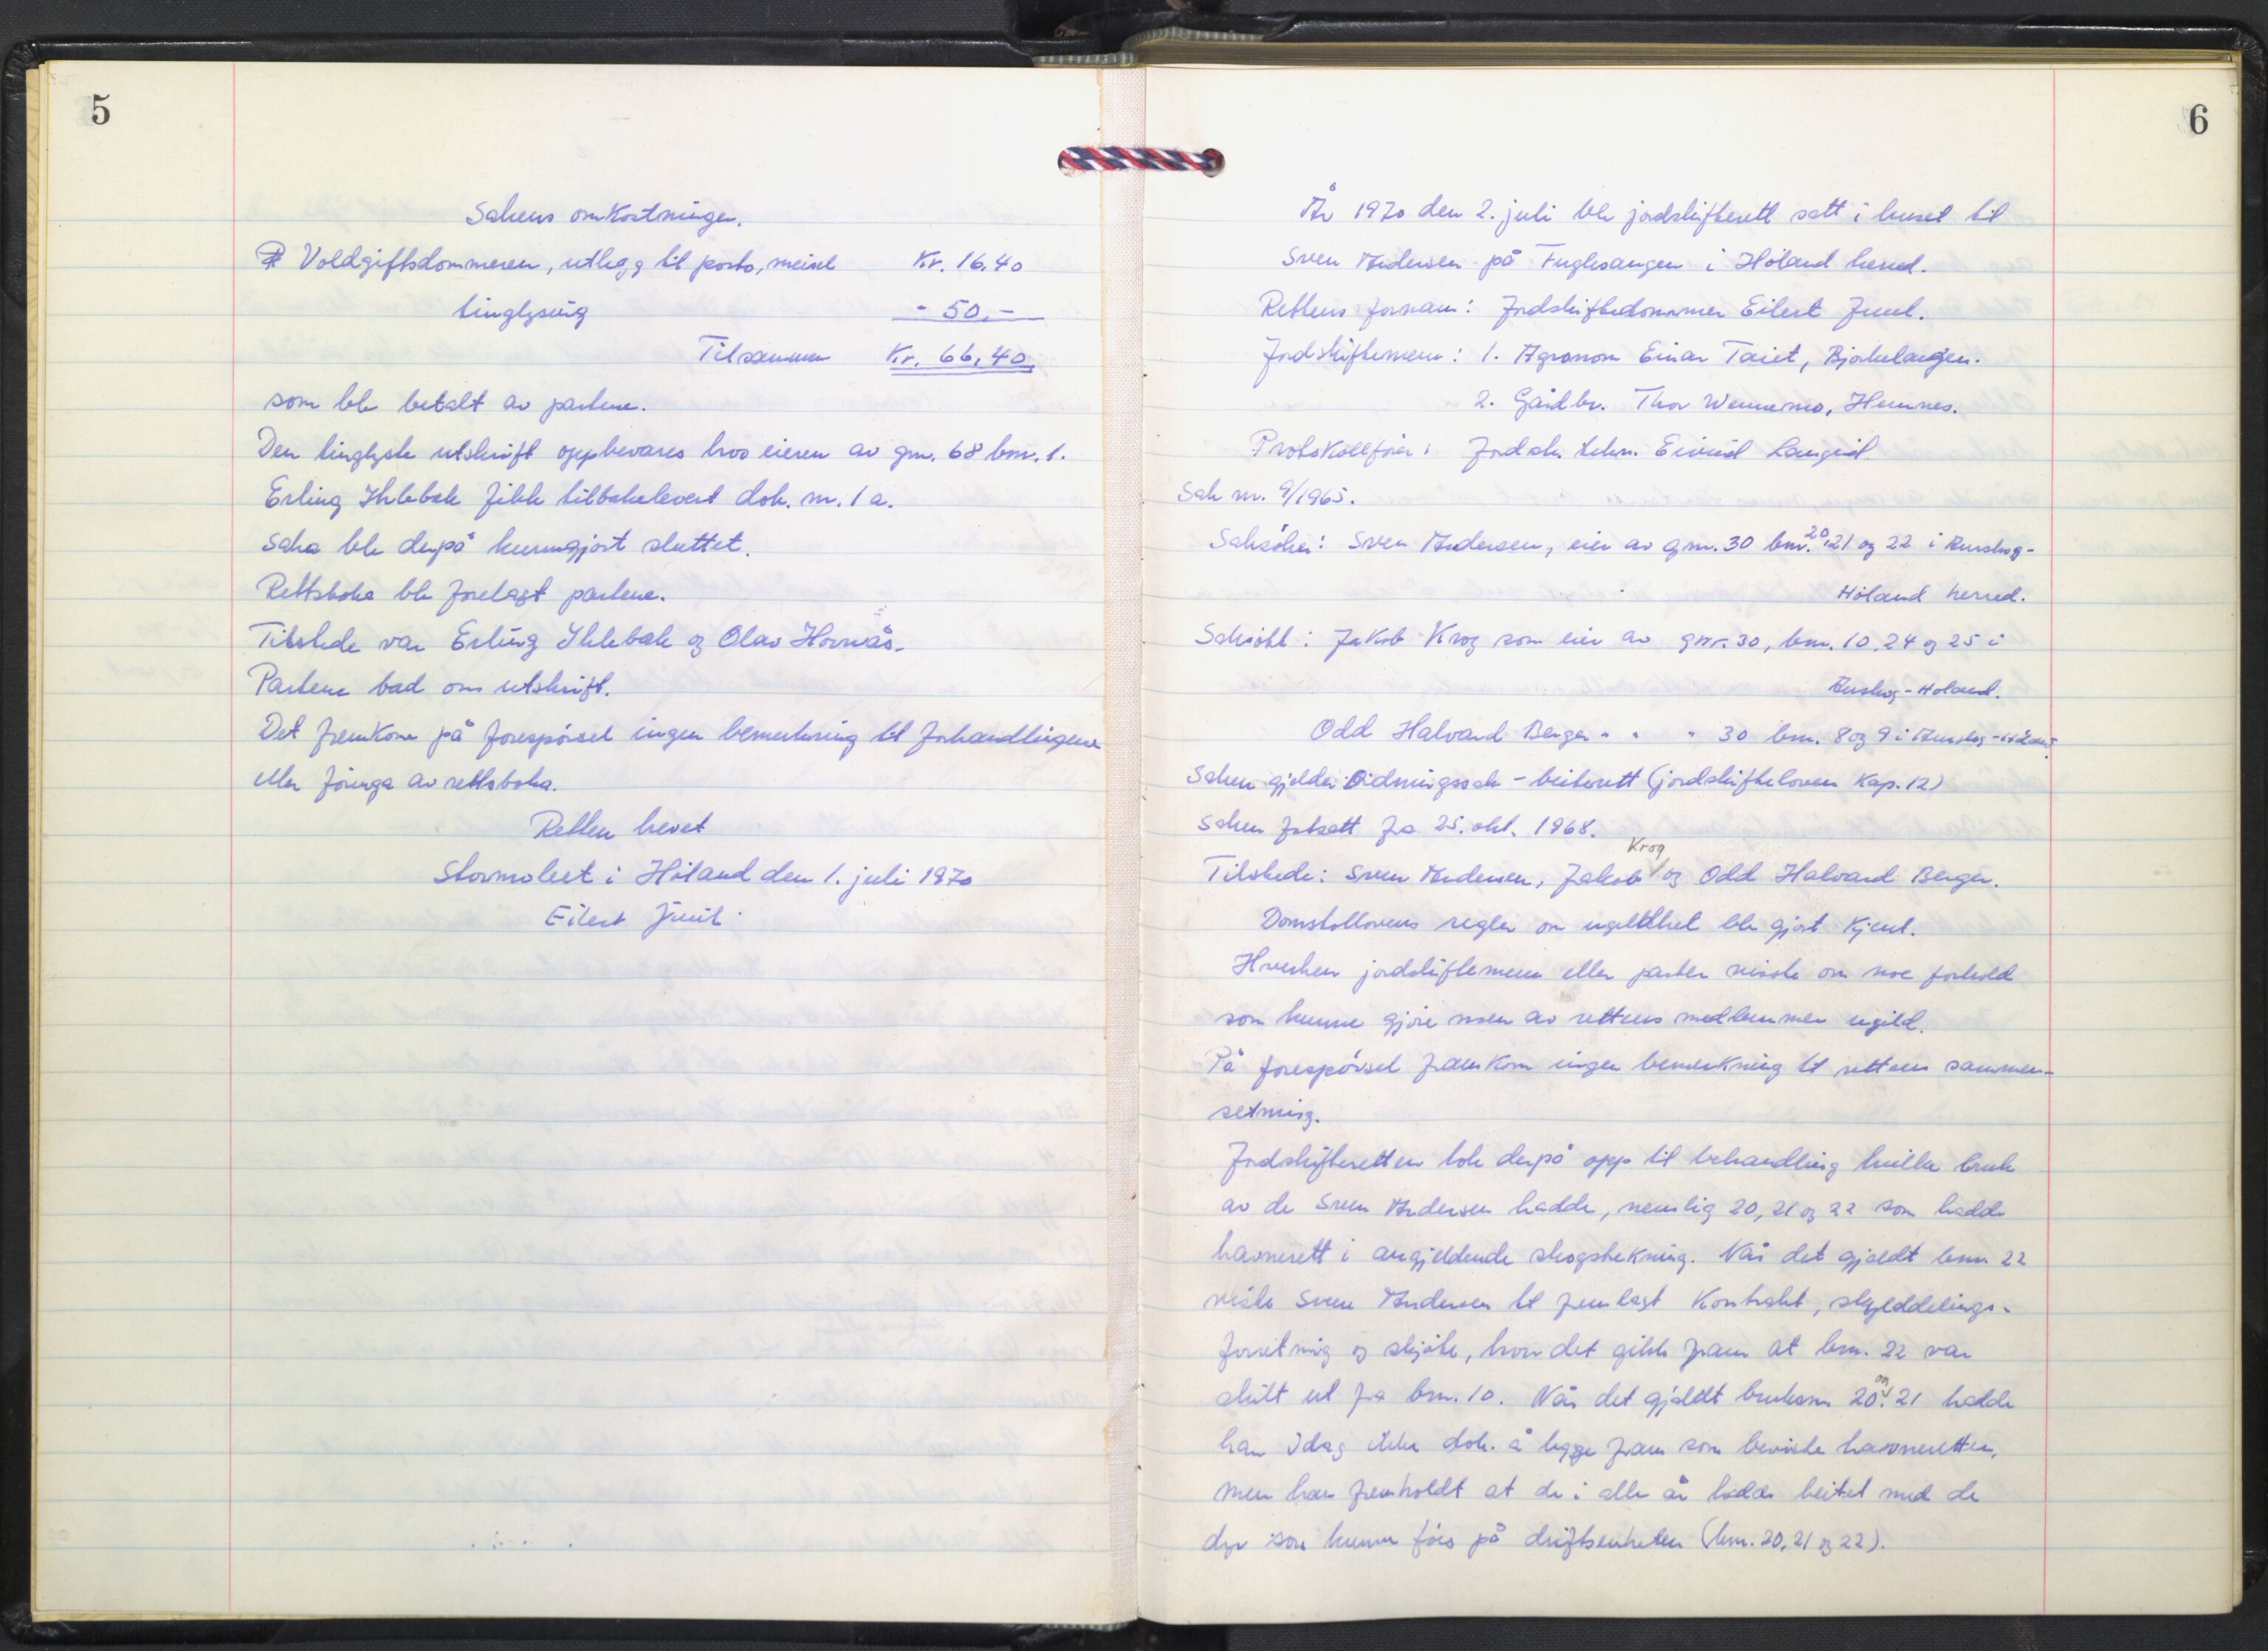 5
Sakens omkostninger.
Voldgiftsdommeren, utlegg til porto, meisel Kr. 16,40
tinglysing - 50,-
Tilsammen Kr. 66,40
som ble betalt av partene.
Den tinglyste utskrift oppbevares hos eieren av gnr. 68 bnr. 1.
Erling Ihlebæk fikk tilbakelevert dok. nr. 1 a.
Saka ble derpå kunngjort sluttet.
Rettsboka ble forelagt partene.
Tilstede var Erling Ihlebæk og Olav Hornås.
Partene bad om utskrift.
Det fremkom på forespørsel ingen bemerkning til forhandlingene
eller føringa av rettsboka.
Retten hevet
i Høland den 1. juli 1970
Eilert Juul
6
År 1970 den 2. juli ble jordskifterett satt i huset til
Sven Andersen på Fuglesangen i Høland herred.
Rettens formann: Jordskiftedommer Eilert Juul.
Jordskiftemenn: 1. Agronom Einar Taiet, Bjørkelangen.
2. Gårdbr. Thor Wennemo, Hemnes.
Protokollfører: Jordsk. tekn. Eivind Langeid.
Sak nr. 9/1965.
Saksøker: Sven Andersen, eier av gnr. 30 bnr. 20, 21 og 22 i Aurskog-
Høland herred.
Saksøkt: Jakob Krog som eier av gnr. 30, bnr. 10, 24 og 25 i
Aurskog-Høland.
Odd Halvard Berger " " " 30 bnr. 8 og 9 i Aurskog-Høland.
Saken gjelder: Ordningssak - beiterett (jordskifteloven kap. 12)
Saken fortsatt fra 25. okt. 1968.
Tilstede: Sven Andersen, Jakob Krog og Odd Halvard Berger.
Domstollovens regler om ugildhet ble gjort kjent.
Hverken jordskiftemenn eller parter visste om noe forhold
som kunne gjøre noen av rettens medlemmer ugild.
På forespørsel framkom ingen bemerkning til rettens sammen-
setning.
Jordskifteretten tok derpå opp til behandling hvilke bruk
av de Sven Andersen hadde, nemlig 20, 21 og 22 som hadde
havnerett i angjeldende skogstrekning. Når det gjaldt bnr. 22
viste Sven Andersen til fremlagt kontrakt, skylddelings-
forretning og skjøte, hvor det gikk fram at bnr. 22 var
skilt ut fra bnr. 10. Når det gjaldt bruksnr. 20 og 21 hadde
han idag ikke dok. å legge fram som beviste havneretten,
men han fremholdt at de i alle år hadde beitet med de
dyr som kunne fôres på driftsenheten (bnr. 20, 21 og 22).